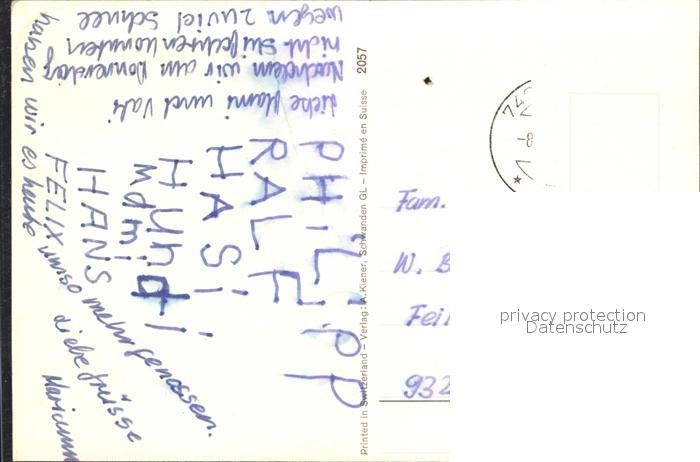 Liebe Mami und Vati
Nachdem wir am Donnerstag
nicht skifahren konnten
wegen zuviel Schnee
haben wir es heute
umso mehr genossen.
Liebe Grüsse
PHiLiPP
RALF
HASi
Hündi
Mami
HANS
FELIX
Printed in Switzerland – Verlag: A. Kiener, Schwanden GL – Imprimé en Suisse 2057
Fam.
W. B
Fei
932
privacy protection
Datenschutz